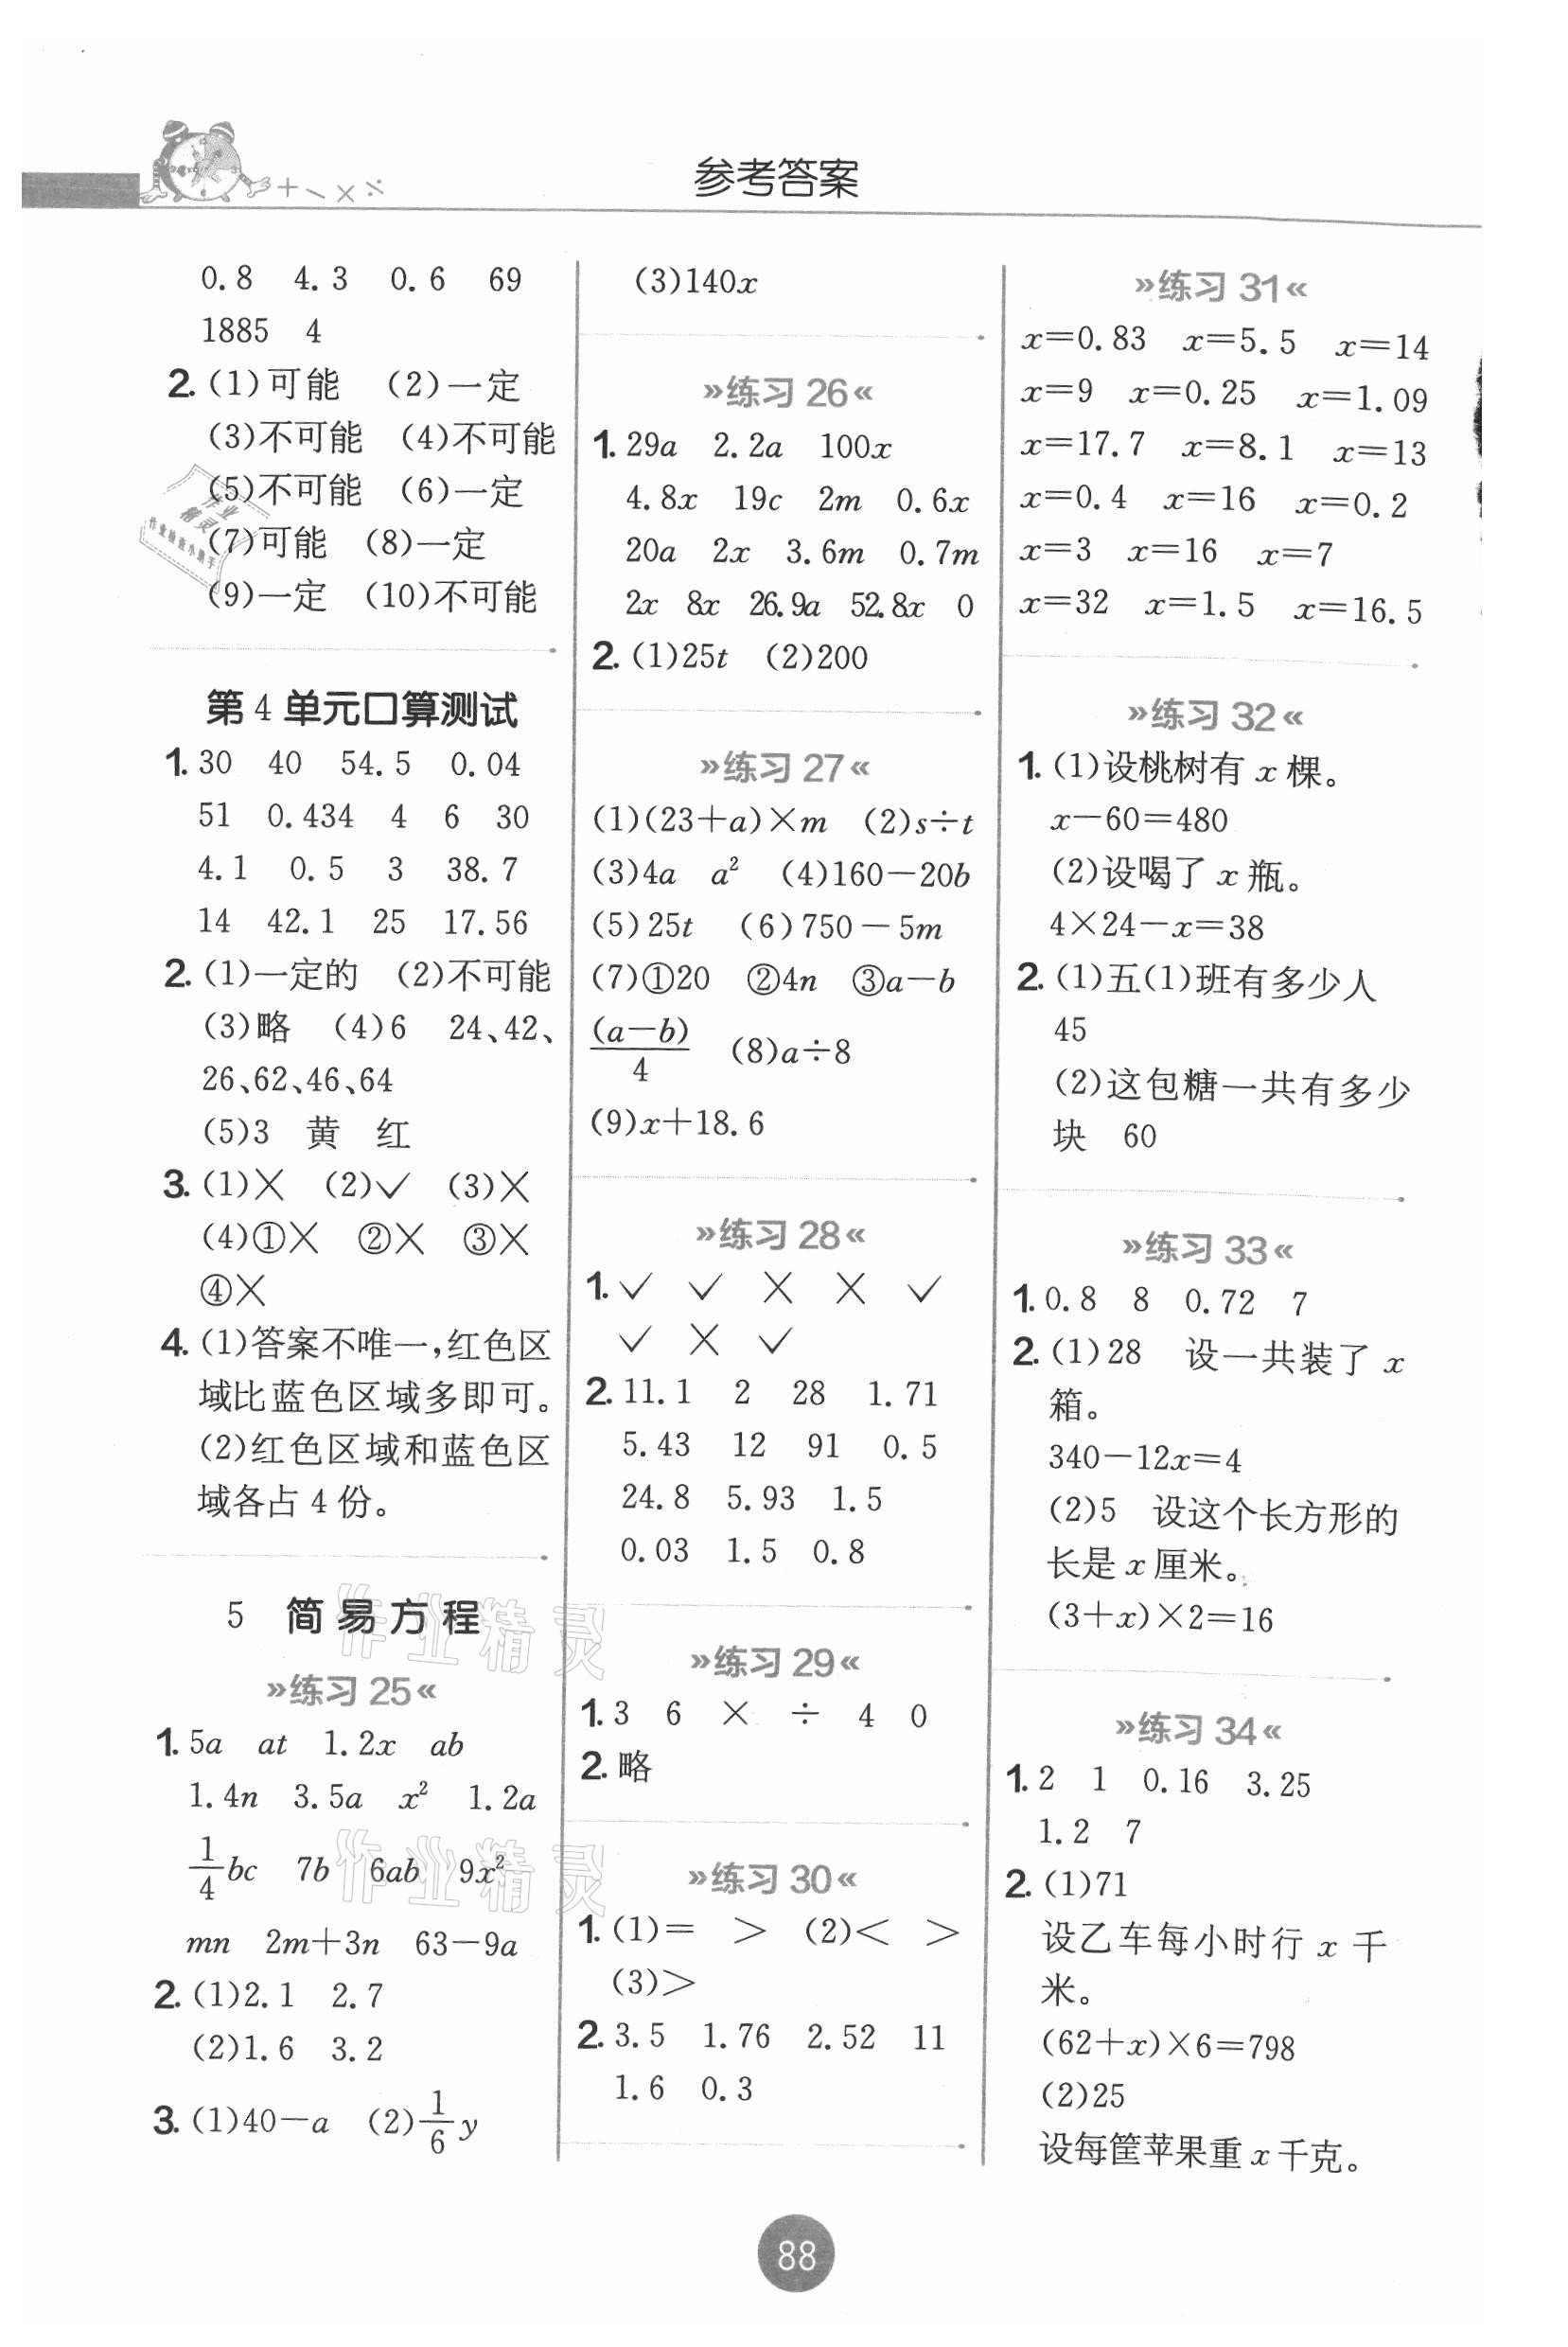 参考答案
0.8 4.3 0.6 69
1885 4
2.(1)可能 (2)一定
(3)不可能 (4)不可能
(5)不可能 (6)一定
(7)可能 (8)一定
(9)一定 (10)不可能
第4单元口算测试
1.30 40 54.5 0.04
51 0.434 4 6 30
4.1 0.5 3 38.7
14 42.1 25 17.56
2.(1)一定的 (2)不可能
(3)略 (4)6 24、42、
26、62、46、64
(5)3 黄 红
3.(1)× (2)✓ (3)×
(4)①× ②× ③×
④×
4.(1)答案不唯一,红色区
域比蓝色区域多即可。
(2)红色区域和蓝色区
域各占4份。
5 简易方程
»练习25«
1.5a at 1.2x ab
1.4n 3.5a x² 1.2a
1/4bc 7b 6ab 9x²
mn 2m+3n 63-9a
2.(1)2.1 2.7
(2)1.6 3.2
3.(1)40-a (2)1/6y
(3)140x
»练习26«
1.29a 2.2a 100x
4.8x 19c 2m 0.6x
20a 2x 3.6m 0.7m
2x 8x 26.9a 52.8x 0
2.(1)25t (2)200
»练习27«
(1)(23+a)×m (2)s÷t
(3)4a a² (4)160-20b
(5)25t (6)750-5m
(7)①20 ②4n ③a-b
(a-b)/4 (8)a÷8
(9)x+18.6
»练习28«
1.✓ ✓ × × ✓
✓ × ✓
2.11.1 2 28 1.71
5.43 12 91 0.5
24.8 5.93 1.5
0.03 1.5 0.8
»练习29«
1.3 6 × ÷ 4 0
2.略
»练习30«
1.(1)= > (2)< >
(3)>
2.3.5 1.76 2.52 11
1.6 0.3
»练习31«
x=0.83 x=5.5 x=14
x=9 x=0.25 x=1.09
x=17.7 x=8.1 x=13
x=0.4 x=16 x=0.2
x=3 x=16 x=7
x=32 x=1.5 x=16.5
»练习32«
1.(1)设桃树有x棵。
x-60=480
(2)设喝了x瓶。
4×24-x=38
2.(1)五(1)班有多少人
45
(2)这包糖一共有多少
块 60
»练习33«
1.0.8 8 0.72 7
2.(1)28 设一共装了x
箱。
340-12x=4
(2)5 设这个长方形的
长是x厘米。
(3+x)×2=16
»练习34«
1.2 1 0.16 3.25
1.2 7
2.(1)71
设乙车每小时行x千
米。
(62+x)×6=798
(2)25
设每筐苹果重x千克。
88
作业精灵
作业检查小助手
作业精灵
作业精灵